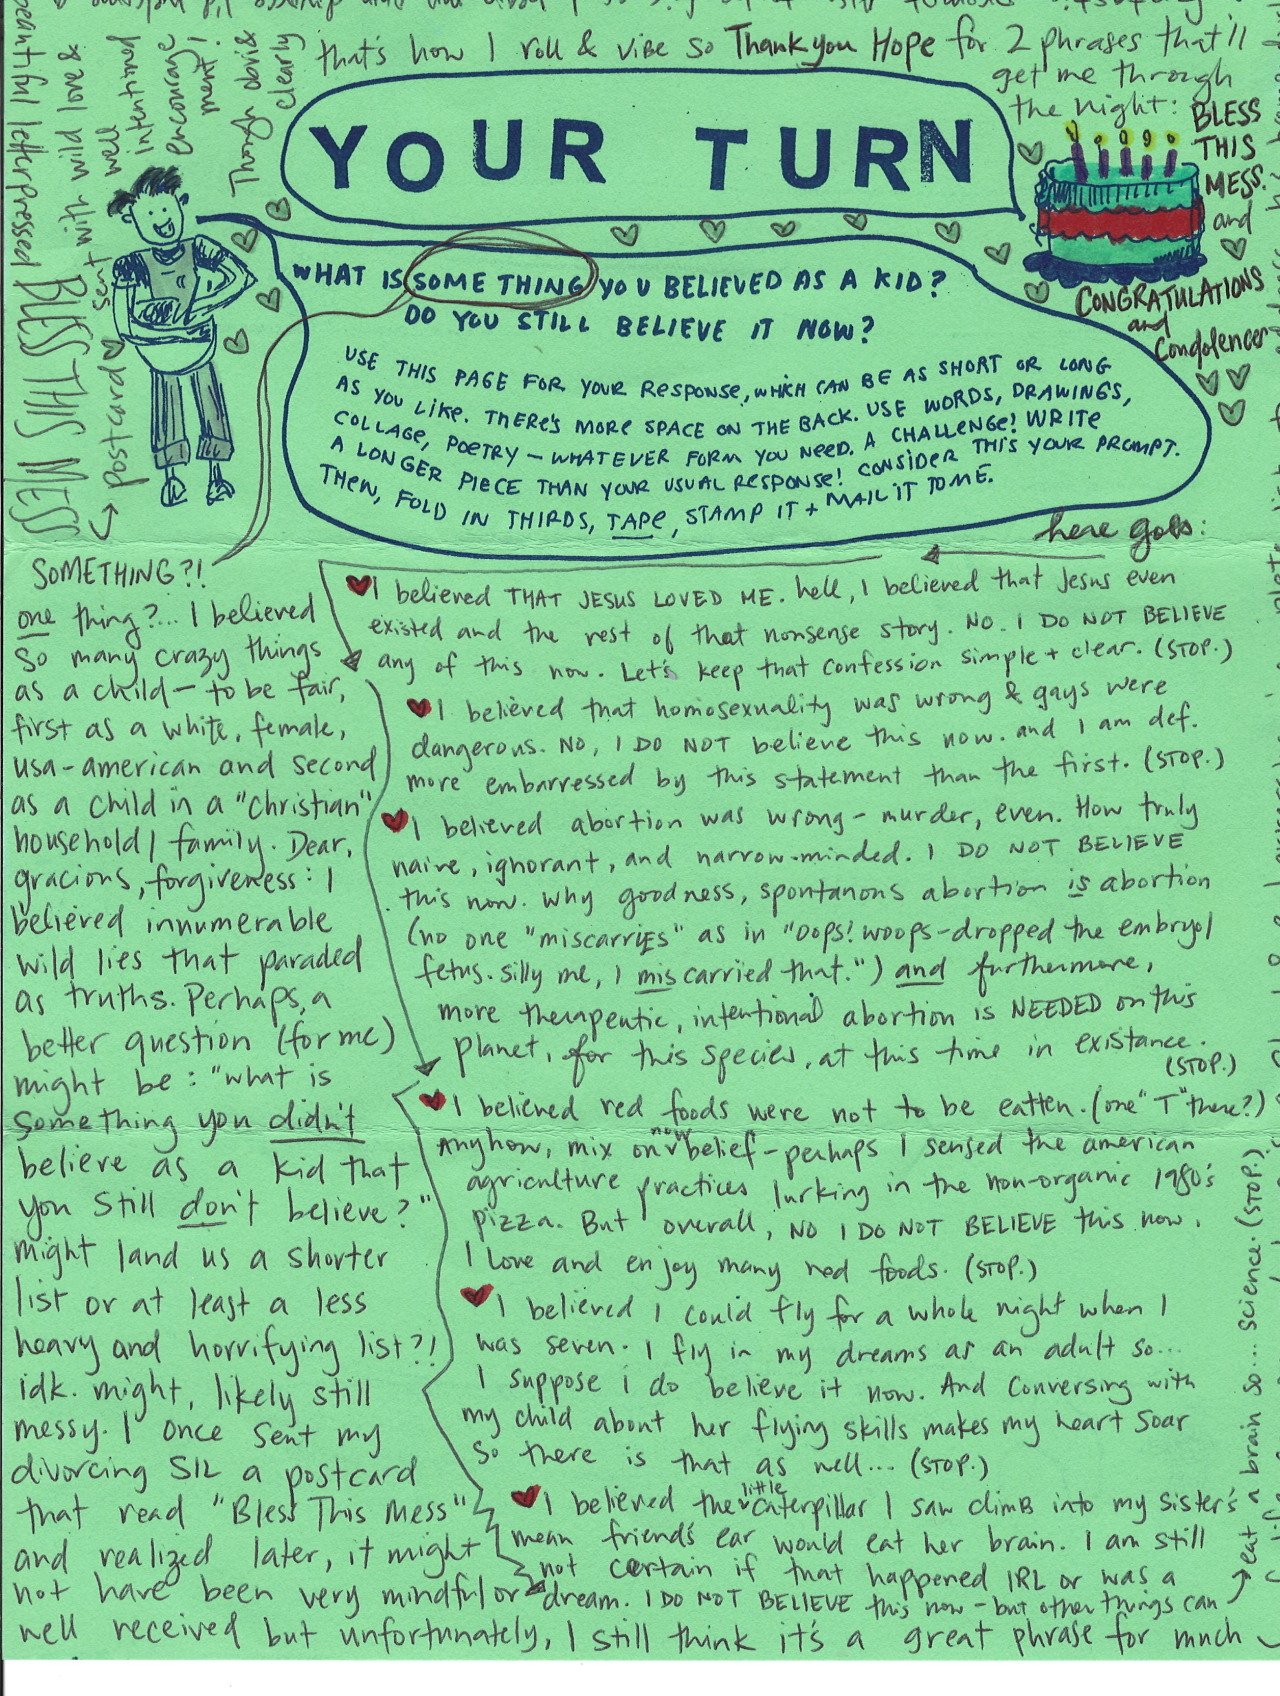 that's how I roll & vibe so Thank you Hope for 2 phrases that'll
get me through
the night:
BLESS
THIS
MESS.
and
CONGRATULATIONS
and
Condolences
YOUR TURN
WHAT IS SOMETHING YOU BELIEVED AS A KID?
DO YOU STILL BELIEVE IT NOW?
USE THIS PAGE FOR YOUR RESPONSE, WHICH CAN BE AS SHORT OR LONG
AS YOU LIKE. THERE'S MORE SPACE ON THE BACK. USE WORDS, DRAWINGS,
COLLAGE, POETRY — WHATEVER FORM YOU NEED. A CHALLENGE! WRITE
A LONGER PIECE THAN YOUR USUAL RESPONSE! CONSIDER THIS YOUR PROMPT.
THEN, FOLD IN THIRDS, TAPE, STAMP IT + MAIL IT TO ME.
beautiful letterpressed
BLESS THIS MESS
postcard
sent with wild love &
well
intentioned
encourage
ment!
Though obvi&
clearly
here goes:
SOMETHING?!
one thing?... I believed
so many crazy things
as a child — to be fair,
first as a white, female,
usa-american and second
as a child in a "Christian"
household/family. Dear,
gracious, forgiveness: I
believed innumerable
wild lies that paraded
as truths. Perhaps, a
better question (for me)
might be: "what is
something you didn't
believe as a kid that
you still don't believe?"
might land us a shorter
list or at least a less
heavy and horrifying list?!
idk. might, likely still
messy. I once sent my
divorcing SIL a postcard
that read "Bless This Mess"
and realized later, it might
not have been very mindful or
well received but unfortunately, I still think it's a great phrase for much
I believed THAT JESUS LOVED ME. hell, I believed that Jesus even
existed and the rest of that nonsense story. NO. I DO NOT BELIEVE
any of this now. Let's keep that confession simple + clear. (STOP.)
I believed that homosexuality was wrong & gays were
dangerous. NO, I DO NOT believe this now. and I am def.
more embarressed by this statement than the first. (STOP.)
I believed abortion was wrong — murder, even. How truly
naive, ignorant, and narrow-minded. I DO NOT BELIEVE
this now. Why goodness, spontanous abortion is abortion
(no one "miscarries" as in "oops! woops-dropped the embryo/
fetus. silly me, I miscarried that.") and furthermore,
more therapeutic, intentional abortion is NEEDED on this
planet, for this species, at this time in existance.
(STOP.)
I believed red foods were not to be eatten. (one "T" there?)
Anyhow, mix on now belief — perhaps I sensed the american
agriculture practices lurking in the non-organic 1980's
pizza. But overall, NO I DO NOT BELIEVE this now.
I Love and enjoy many red foods. (STOP.)
I believed I could fly for a whole night when I
was seven. I fly in my dreams as an adult so...
I suppose i do believe it now. And conversing with
my child about her flying skills makes my heart soar
so there is that as well... (STOP.)
I believed the little caterpillar I saw climb into my sister's
mean friend's ear would eat her brain. I am still
not certain if that happened IRL or was a
dream. I DO NOT BELIEVE this now — but other things can
eat a brain so... science. (STOP.)